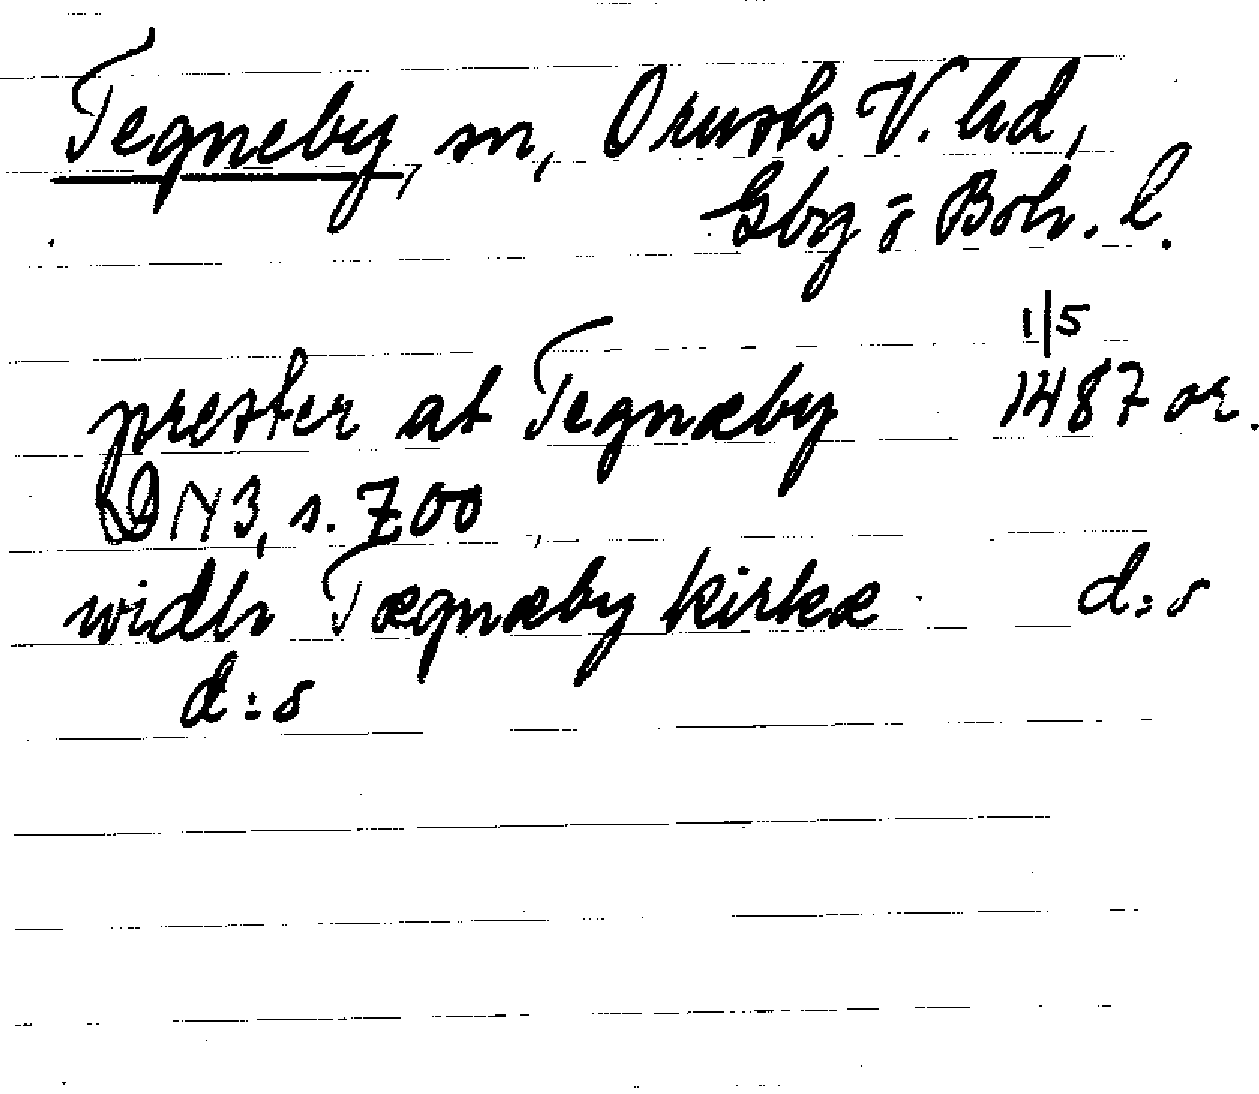 Tegneby, sn, Orusts V. hd,
Gbg o Boh. l.
1/5
prester at Tegnæby 1487 or.
DN 3, s. 700
widh Tægnæby kirkæ d:o
d:o